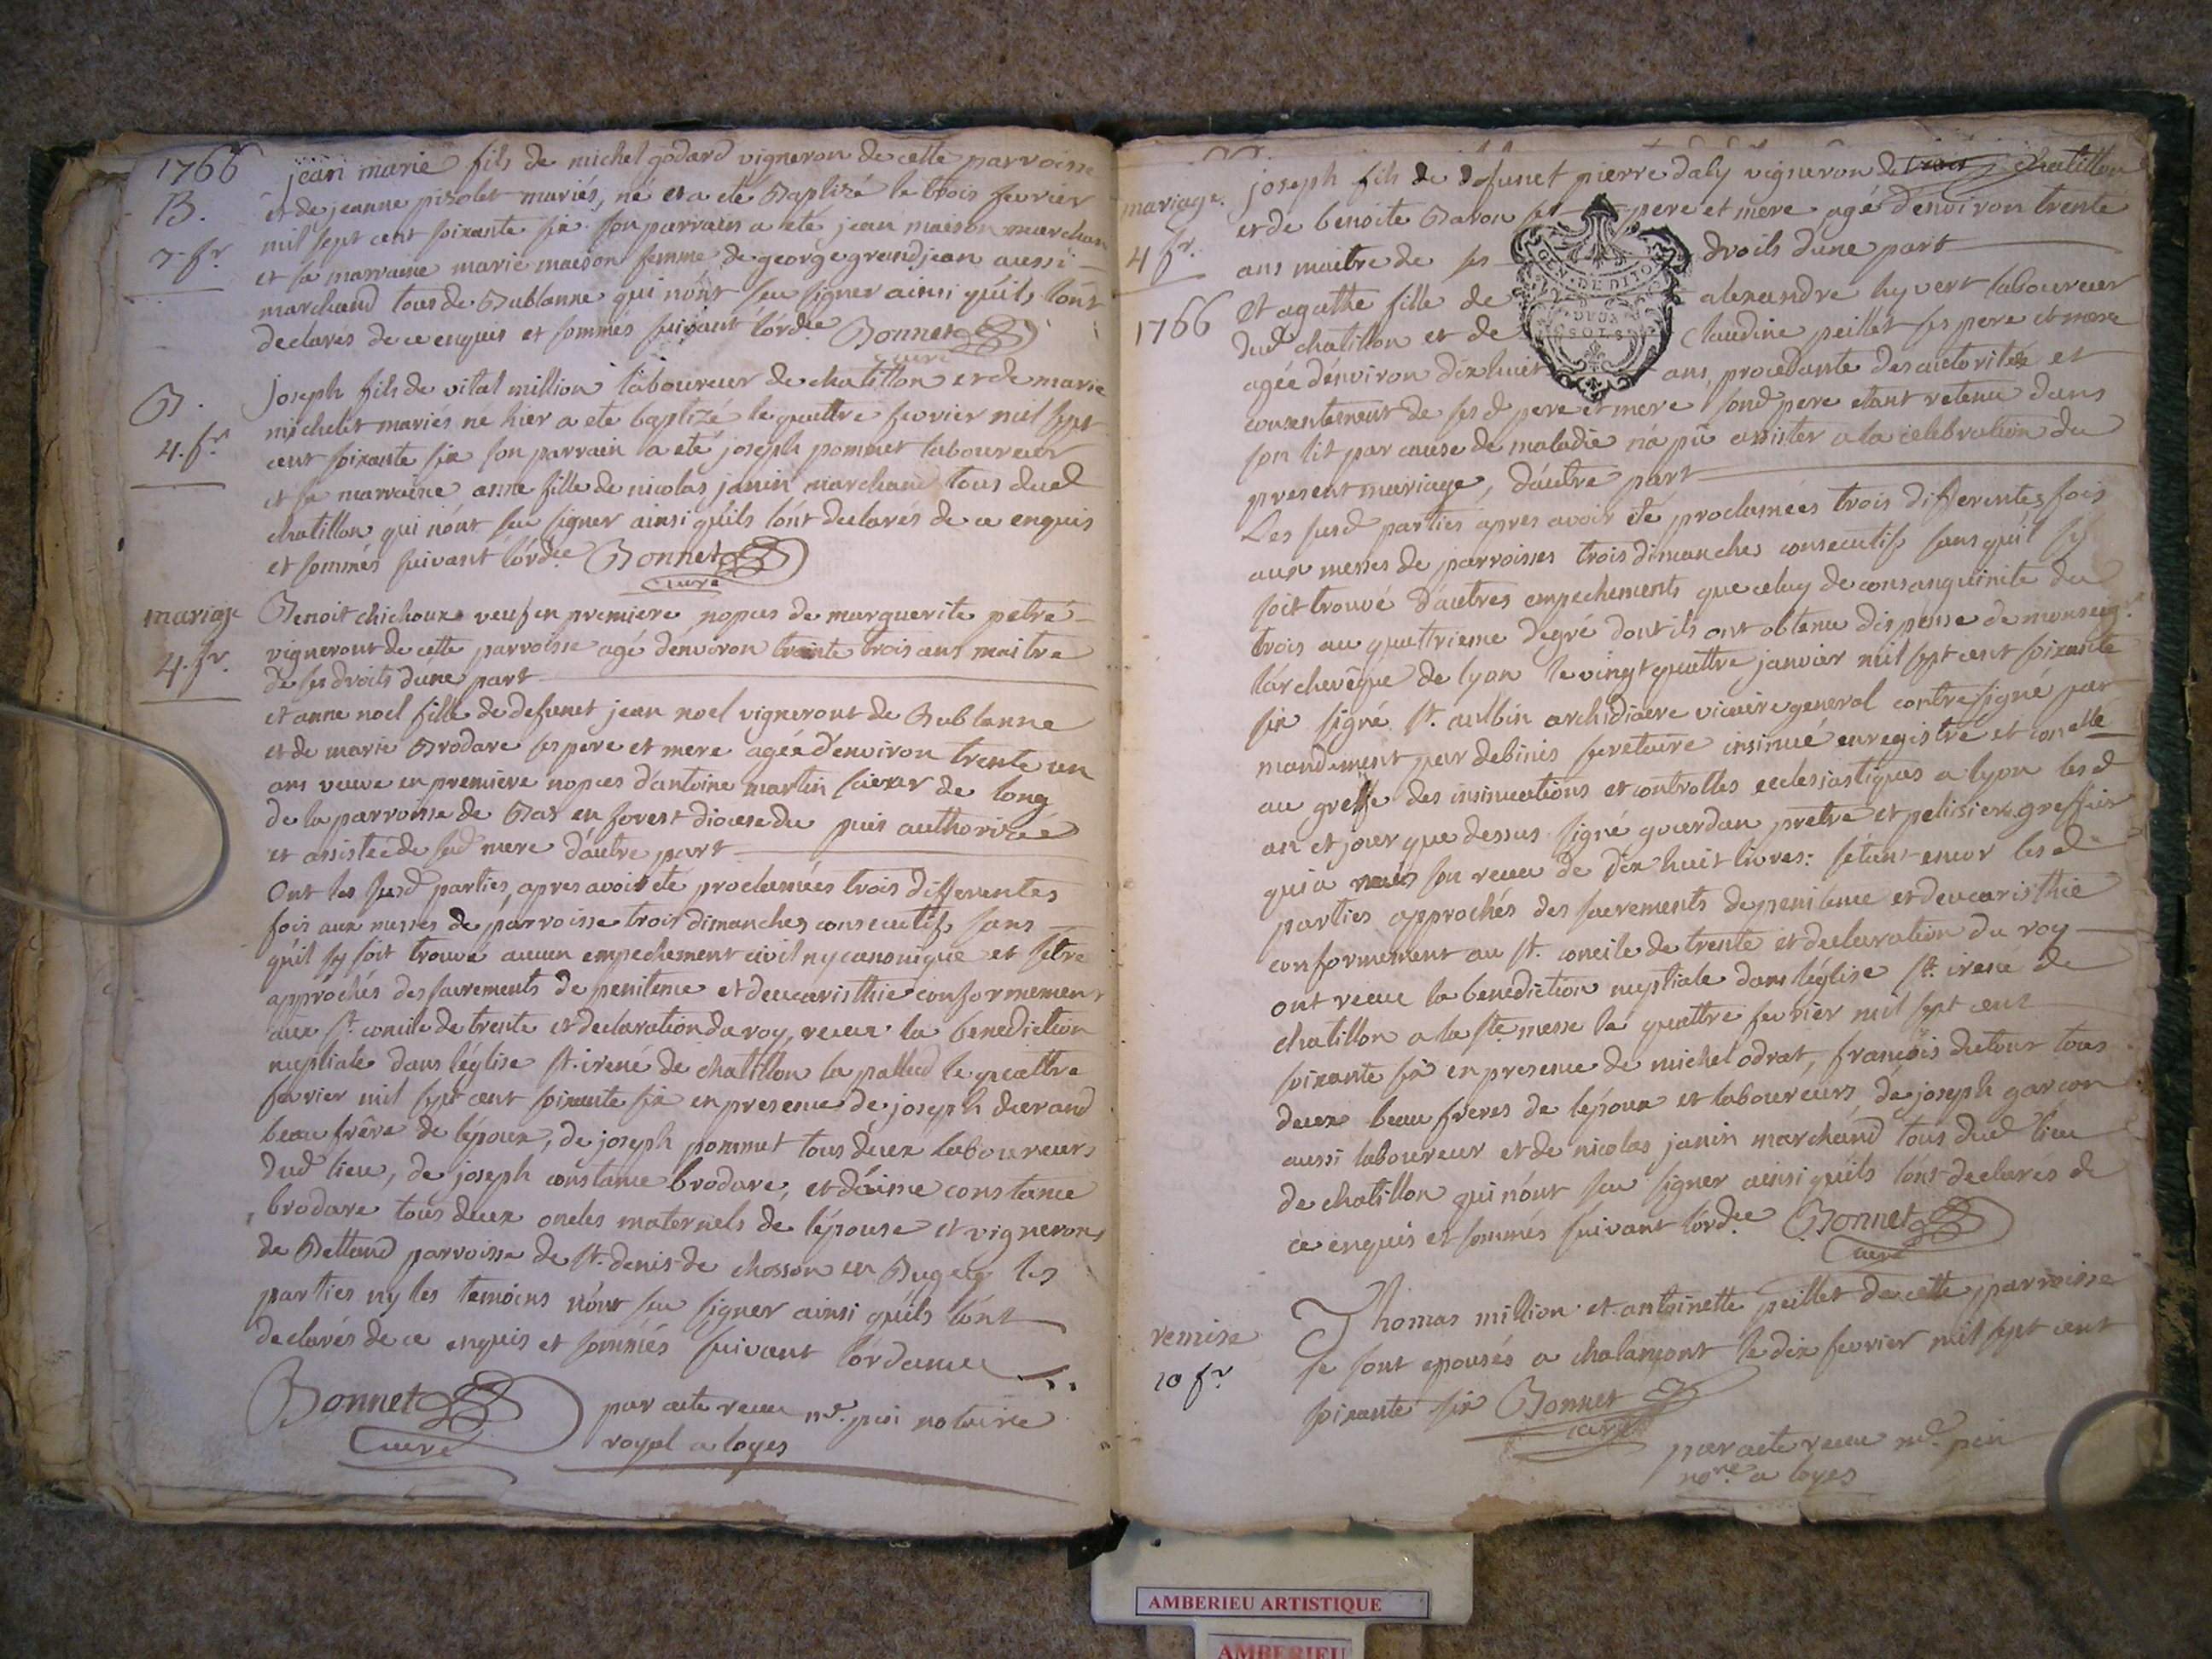 1766
B.
3. fr
jean marie fils de michel godard vigneron de cette parroisse
et de jeanne pisolet mariés, né et a été Baptizé le trois fevrier
mil sept cent soixante six son parrain a eté jean maison marchan
et sa marraine marie maison femme de george grandjean aussi
marchand tous de Bublanne qui n'ónt sçu signer ainsi qu'ils lónt
declarés de ce enquis et sommés suivant lórdce Bonnet
curé
B.
4. fr
joseph fils de vital million laboureur de chatillon et de marie
michelet mariés né hier a eté baptizé le quattre fevrier mil sept
cent soixante six son parrain a eté joseph pommet laboureur
et sa marraine anne fille de nicolas janin marchand tous dud
chatillon qui nónt sçu signer ainsi qu'ils lónt declarés de ce enquis
et sommés suivant lórdce Bonnet
curé
mariage
4. fr
Benoit chichoux veuf en premiere nopces de marguerite petré
vigneront de cette parroisse agé dénviron trente trois ans maitre
de ses droits dúne part
et anne noel fille de defunct jean noel vigneront de Bublanne
et de marie Brodare ses pere et mere agée d'environ trente un
ans veuve en premiere nopces d'antoine martin sieur de long
de la parroisse de Bas en forest diocese du puis authorizée
et assistée de sad mere d'autre part
Ont les susd parties, apres avoir eté proclamées trois differentes
fois aux messes de parroisse trois dimanches consecutifs sans
qu'il sy soit trouvé aucun empechement civil ny canonique et sétre
approchés des sacrements de penitence et deucaristhie conformement
aux st. concile de trente et declaration du roy, reçeu la benediction
nuptiale dans léglise st. irené de chatillon la pallud le quattre
fevrier mil sept cent soixante six en presence de joseph durand
beau frêre de lépoux, de joseph pommet tous deux laboureurs
dud lieu, de joseph constance brodare, et d'aime constance
brodare tous deux oncles maternels de lépouse et vignerons
de Bettand parroisse de st. denis de chosson en Bugey les
parties ny les temoins nónt sçu signer ainsi qu'ils lónt
declarés de ce enquis et sommés suivant lórdance
Bonnet
curé
par acte receu me. pin notaire
royal a loyes
mariage.
4 fr.
1766
joseph fils de defunct pierre daly vigneron de chatillon
et de benoite Baron ses pere et mere agé dénviron trente
ans maitre de ses droits dune part
GEN. DE DIJON
DEUX
SOLS
Et agathe fille de alexandre hyvert laboureur
dud chatillon et de Claudine peillet ses pere et mere
agée dénviron dix huit ans, procedante des autorités et
consentement de sesd pere et mere sond pere etant retenu dans
son lit par cause de maladie ná pû assister a la celebration du
present mariage, dáutre part
Les susd parties apres avoir eté proclamées trois differentes fois
aux messes de parroisses trois dimanches consecutifs sans quil sy
soit trouvé dáutres empechements que celuy de consanguinité du
trois au quattrieme degré dont ils ont obtenu dispense de monseigr.
lárchevêque de lyon le vingt quattre janvier mil sept cent soixante
six signé st. aubin archidiacre vicaire general contresigné par
mandement par debinis secretaire insinué enregistré et conelle
au greffe des insinuations et controlles ecclesiastiques a lyon lesd
an et jour que dessus signé gourdan pretre et pelisier greffier
qui a mis son receu de dix huit livres: sétant encor lesd
parties approchés des sacrements de penitence et deucaristhie
conformement au st. concile de trente et declaration du roy
ont receu la benediction nuptiale dans léglise st. irené de
chatillon a la ste messe le quattre fevrier mil sept cent
soixante six en presence de michel odrat, françois dutour tous
deux beau freres de lépoux et laboureurs, de joseph garcon
aussi laboureur et de nicolas janin marchand tous dud lieu
de chatillon qui nónt sçu signer ainsi qu'ils lónt declarés de
ce enquis et sommés suivant lórdce Bonnet
curé
remise
10 fr
Thomas million et antoinette peillet de cette parroisse
se sont epousés a chalamont le dix fevrier mil sept cent
soixante six Bonnet
curé
par acte receu me. pin
nore a loyes
AMBERIEU ARTISTIQUE
AMBERIEU